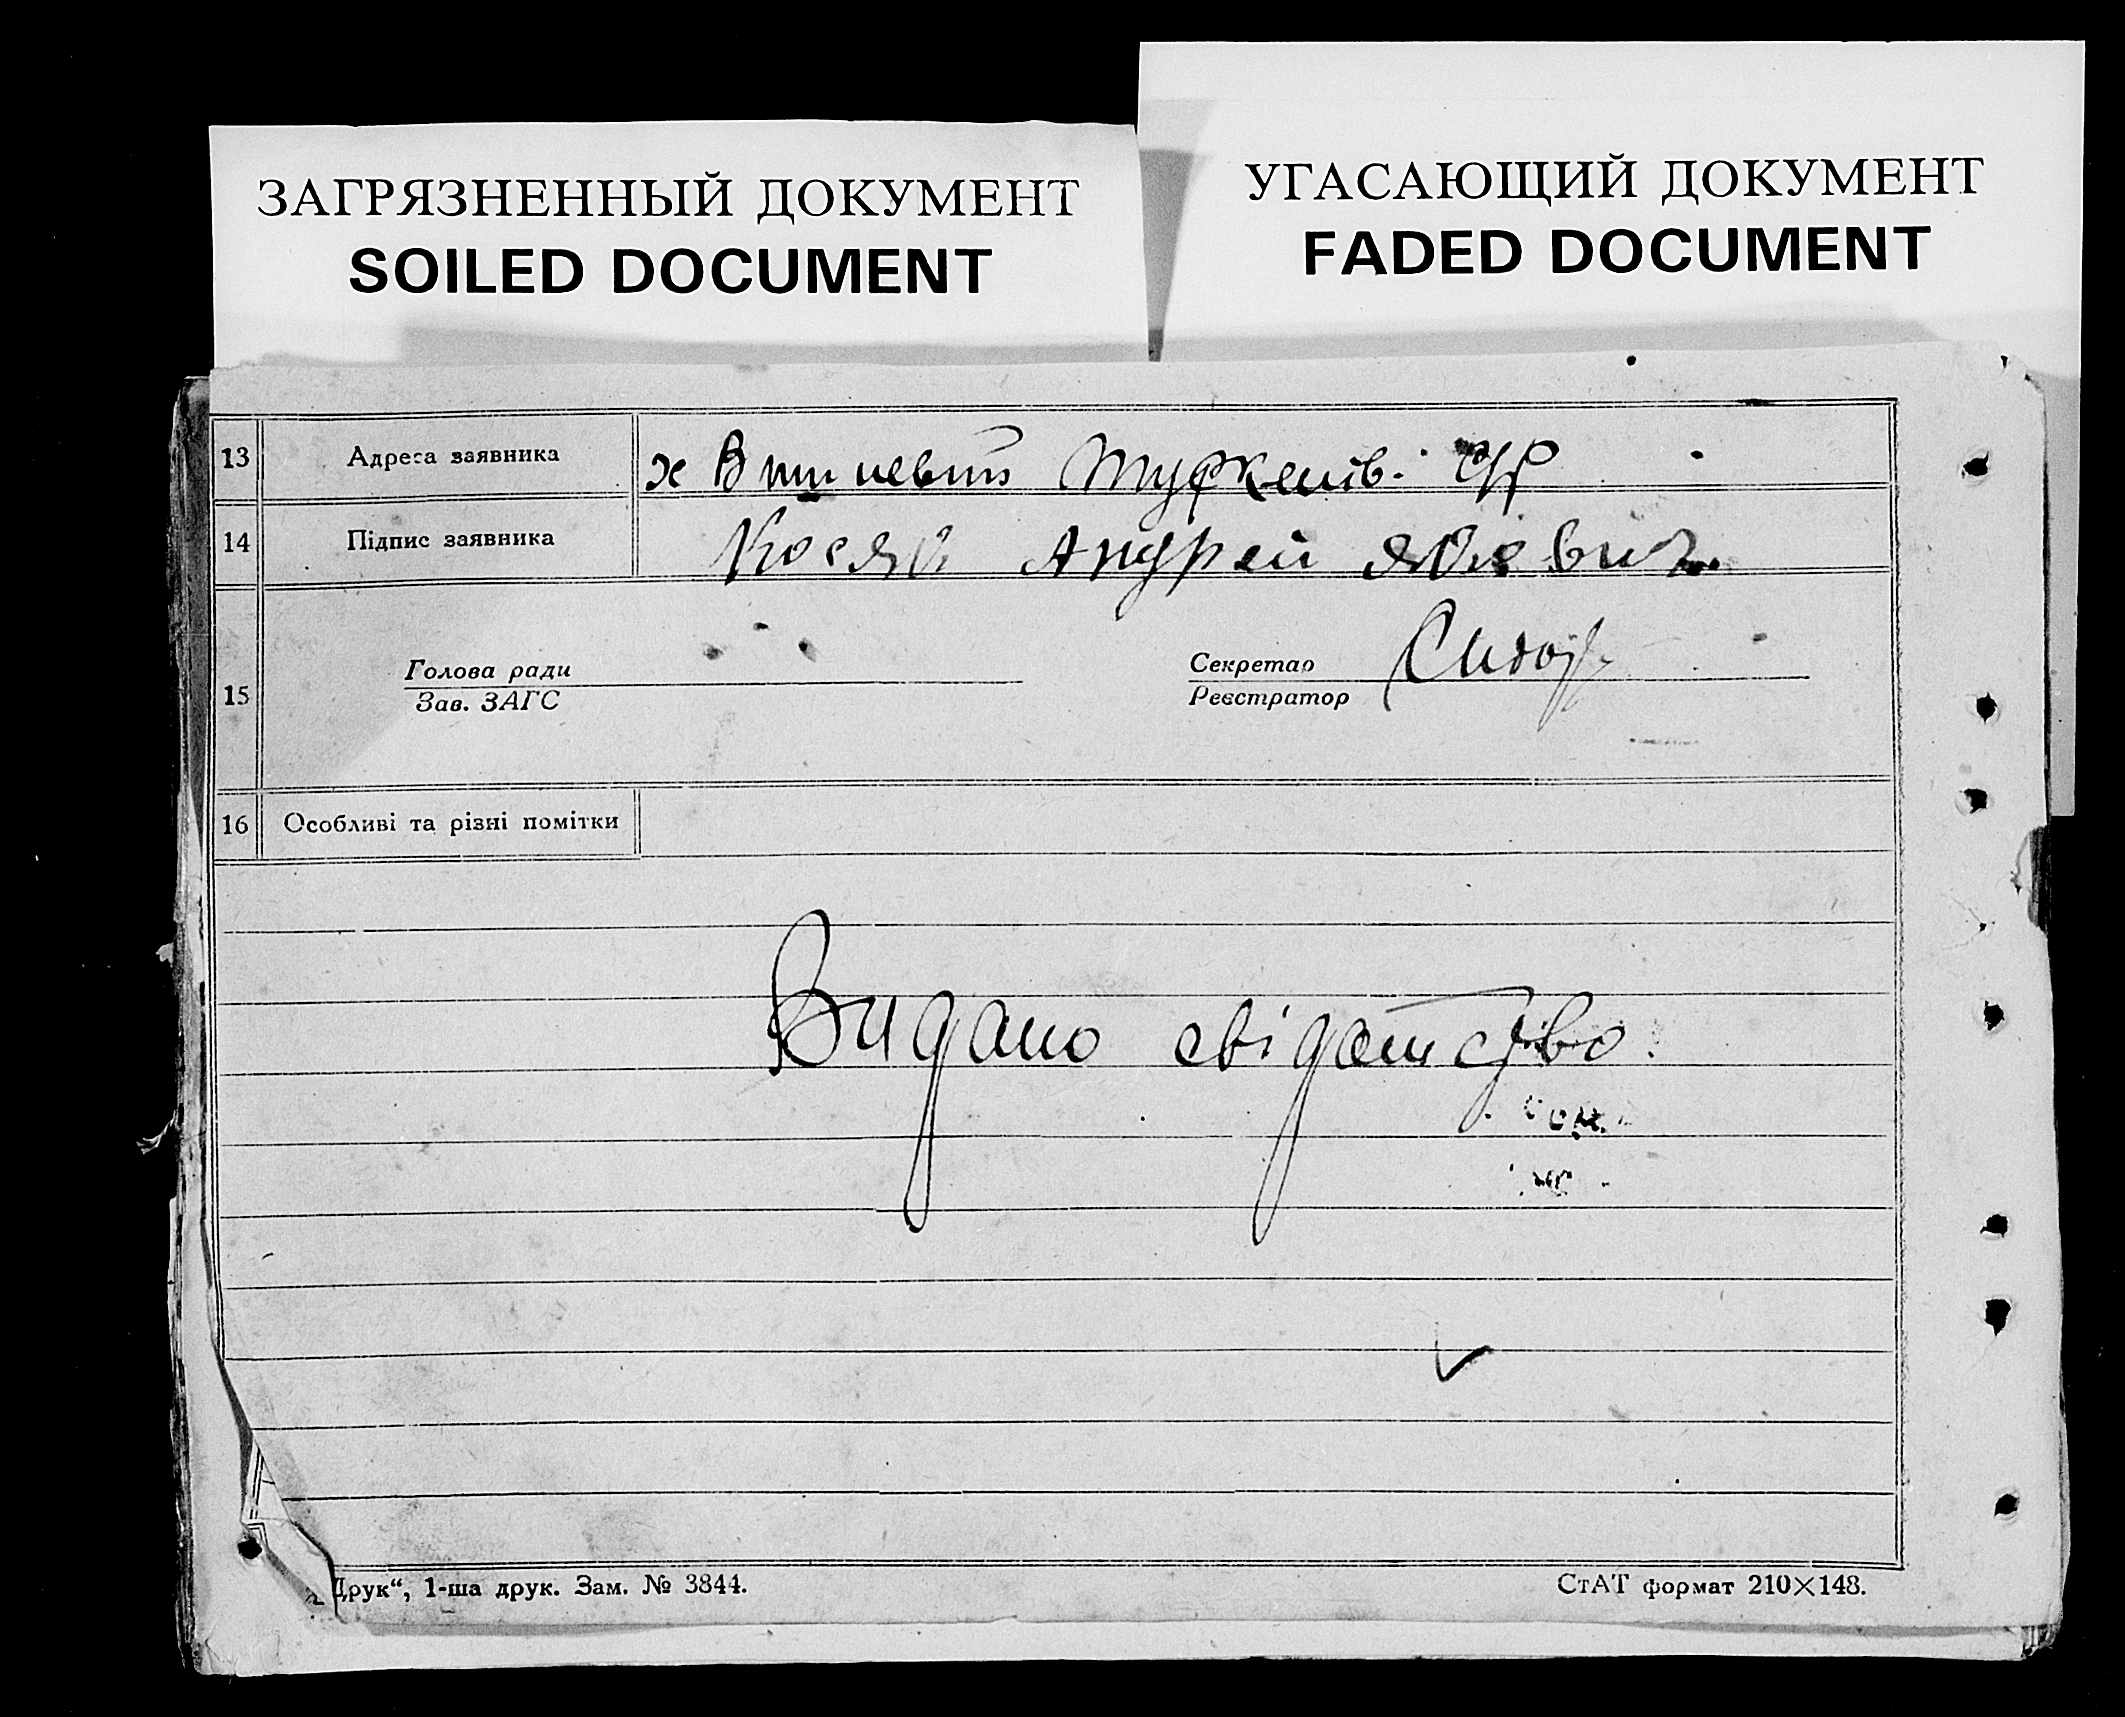 ЗАГРЯЗНЕННЫЙ ДОКУМЕНТ
SOILED DOCUMENT
УГАСАЮЩИЙ ДОКУМЕНТ
FADED DOCUMENT
13 Адреса заявника х
14 Підпис заявника Андрей
15 Голова ради
Зав. ЗАГС
Секретар
Реєстратор
16 Особливі та різні помітки
Видано свідотство.
Друк“, 1-ша друк. Зам. № 3844.
СтАТ формат 210×148.